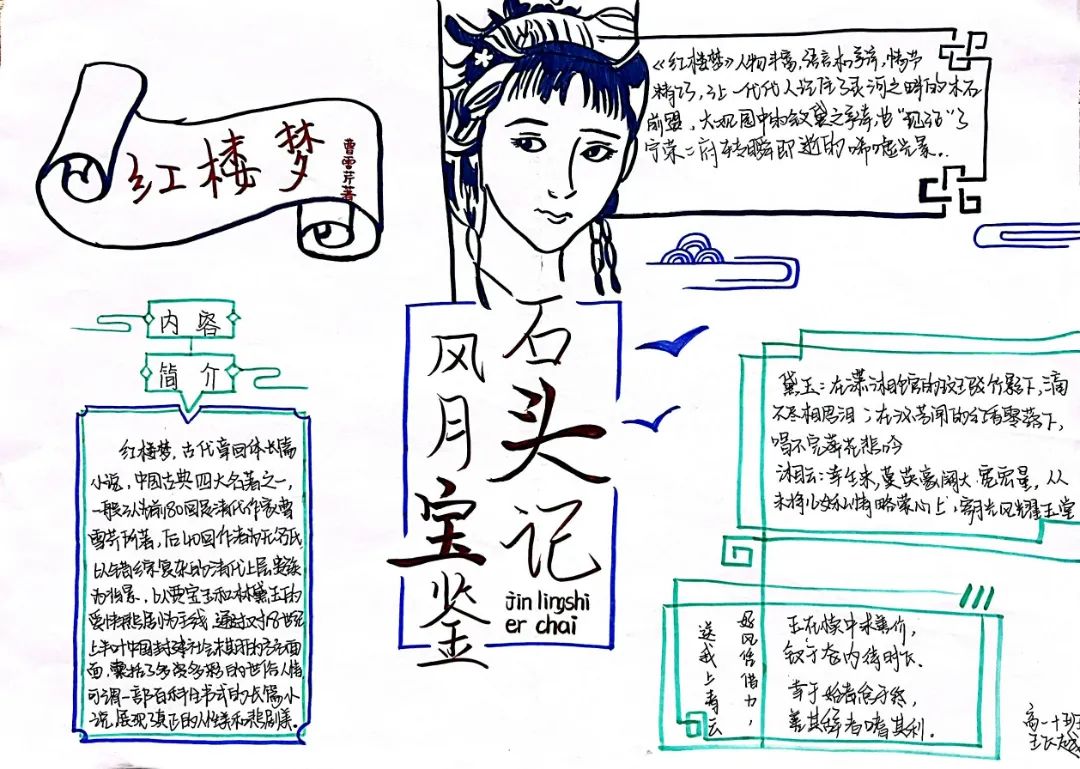 红楼梦
曹雪芹著
《红楼梦》人物丰富,语言和谐,情节
精巧,让一代代人记住了灵河之畔的木石
前盟,大观园中的钗黛之争,
宁荣二府转瞬即逝的唏嘘光景..
内容
简介
红楼梦,古代章回体长篇
小说,中国古典四大名著之一,
一般认为前80回是清代作家曹
雪芹所著,后40回作者为无名氏
以错综复杂的清代上层贵族
为背景,以贾宝玉和林黛玉的
爱情悲剧为主线,通过对18世纪
上半叶中国封建社会末期的方方面
面,囊括了多姿多彩的世俗人情
可谓一部百科全书式的长篇小
说,展现了真正的人性美和悲剧美.
石头记
风月宝鉴
jin lingshi
er chai
黛玉:在潇湘馆的竹影下,滴
不尽相思泪;在的红雨零落下,
唱不完葬花悲吟
湘云:幸生来,英豪阔大宽宏量,从
未将儿女私情略萦心上,霁月光风耀玉堂
好风凭借力,
送我上青云
玉在椟中求善价,
钗于奁内待时飞.
善其解者嗜其利.
高一十班